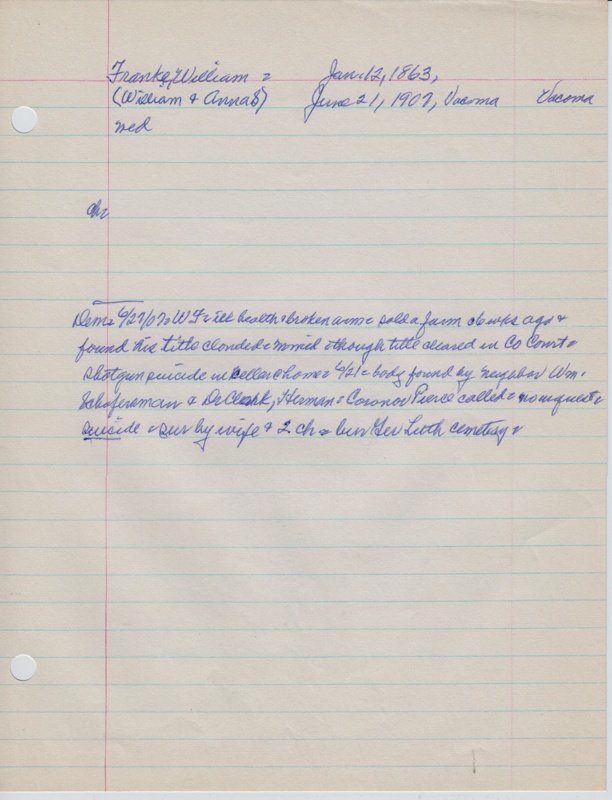 Franke, William = Jan. 12, 1863,
(William & Anna S) June 21, 1907, Vacoma Vacoma
wed
ch=
Dem= 6/27/07= W F= ill health & broken arm= sold a farm 6 wks ago &
found his title clouded= worried though title cleared in Co Court=
shotgun suicide in cellar home= 6/21= body found by neighbor Wm.
Schafersman & Dr Clark, Herman= Coronor Pierce called= no inquest=
suicide = sur by wife & 2 ch= bur Ger Luth cemetery=